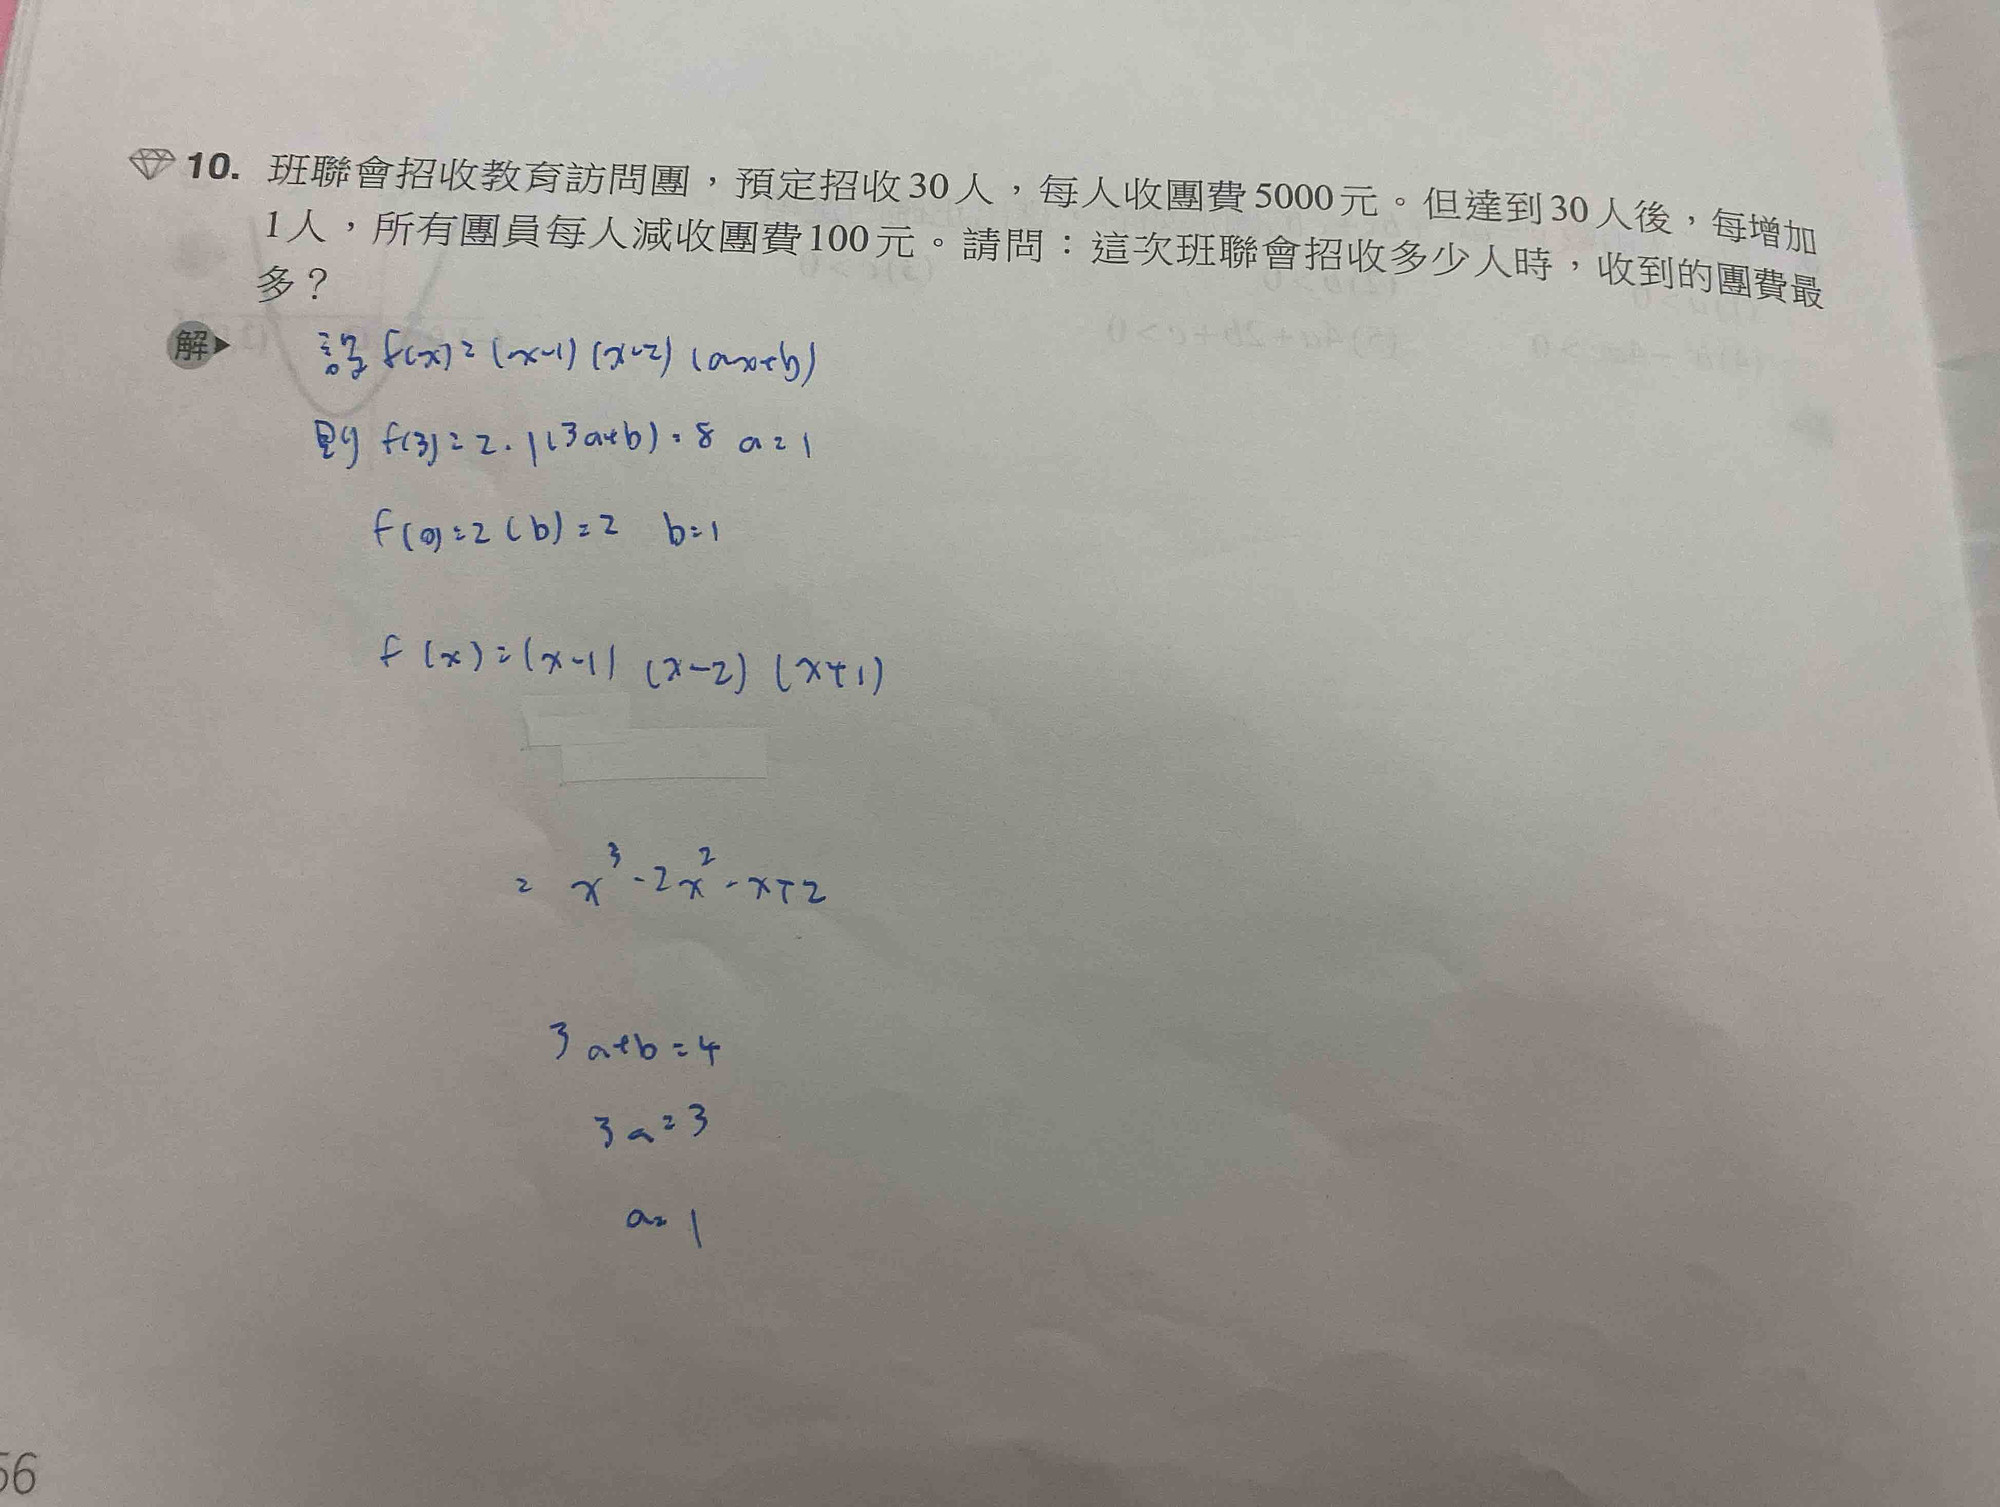 10. 班聯會招收教育訪問團，預定招收30人，每人收團費5000元。但達到30人後，每增加
1人，所有團員每人減收團費100元。請問：這次班聯會招收多少人時，收到的團費最
多？
解
設 f(x)=(x-1)(x-2)(ax+b)
則 f(3)=2·1(3a+b)=8 a=1
f(0)=2(b)=2 b=1
f(x)=(x-1)(x-2)(x+1)
= x³-2x²-x+2
3a+b=4
3a=3
a=1
56